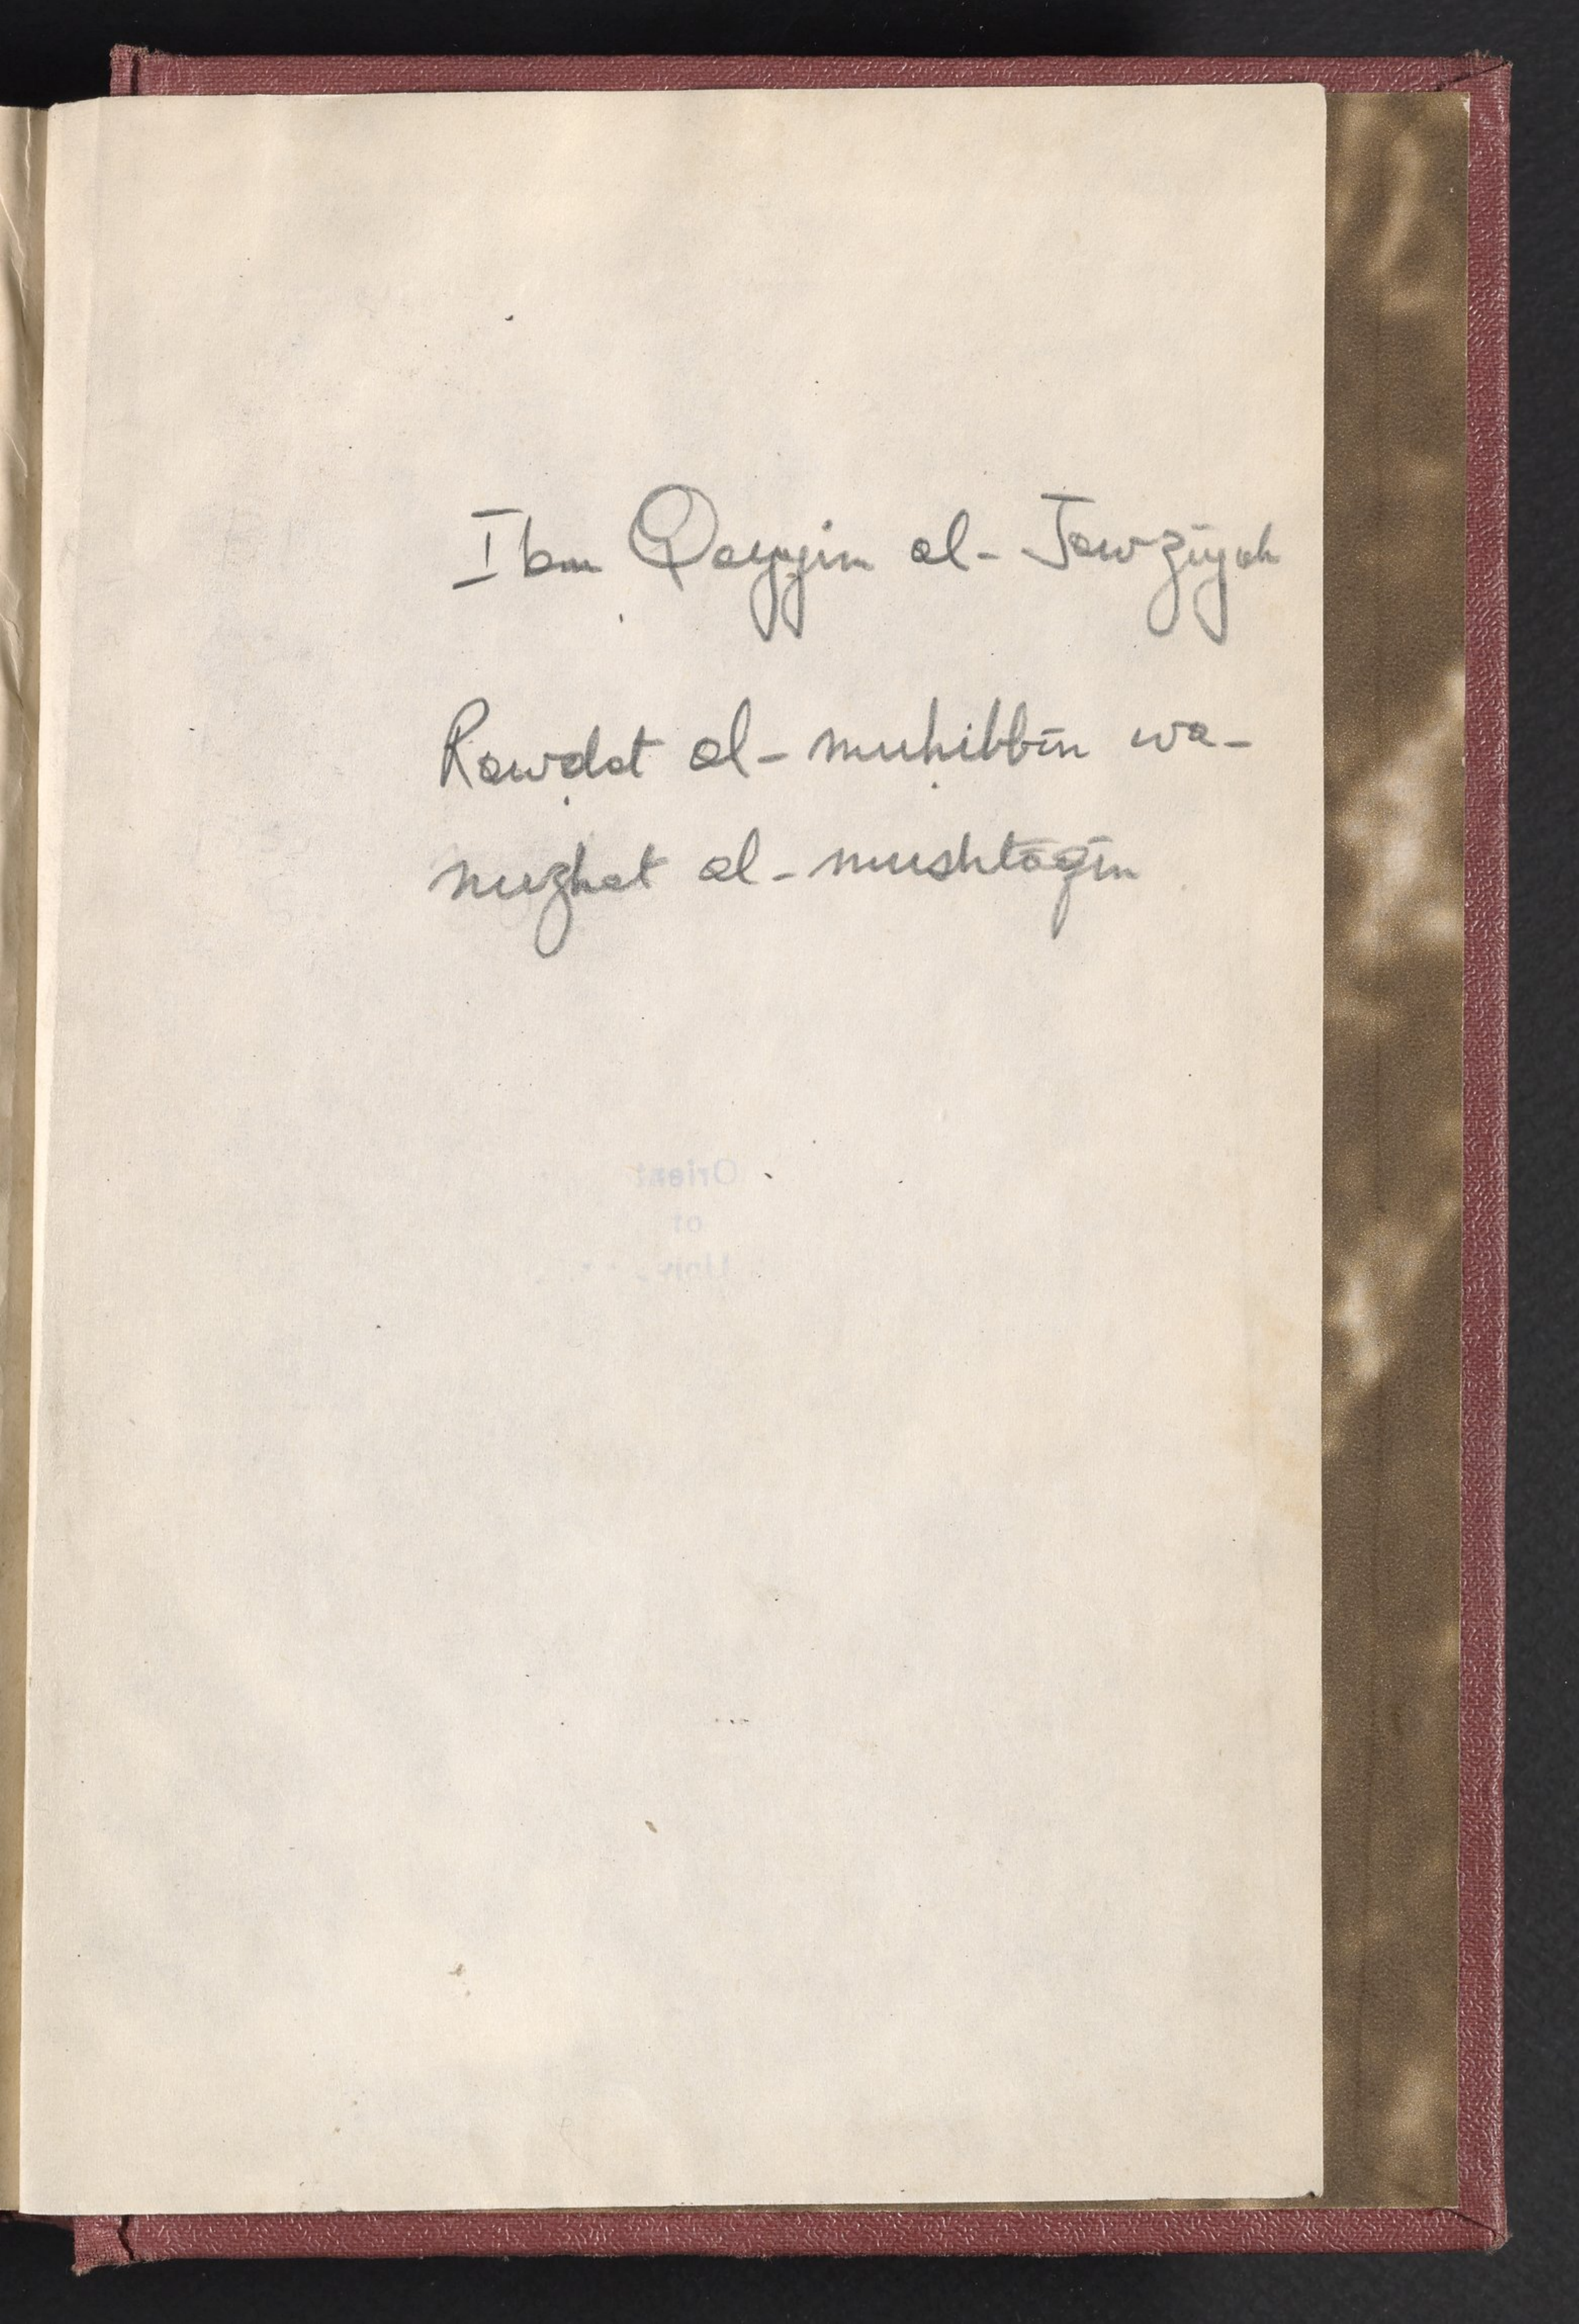 Ibn Qayyim al-Jawzīyah
Rawḍat al-muḥibbīn wa-
nuzhat al-mushtāqīn
Orient
of
Univ.